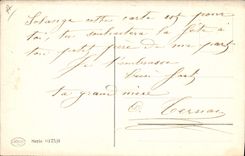 Solange cette carte est pour
toi, tu souhaiteras la fête à
ton petit frère de ma part
Je t'embrasse
bien fort
ta grand mère